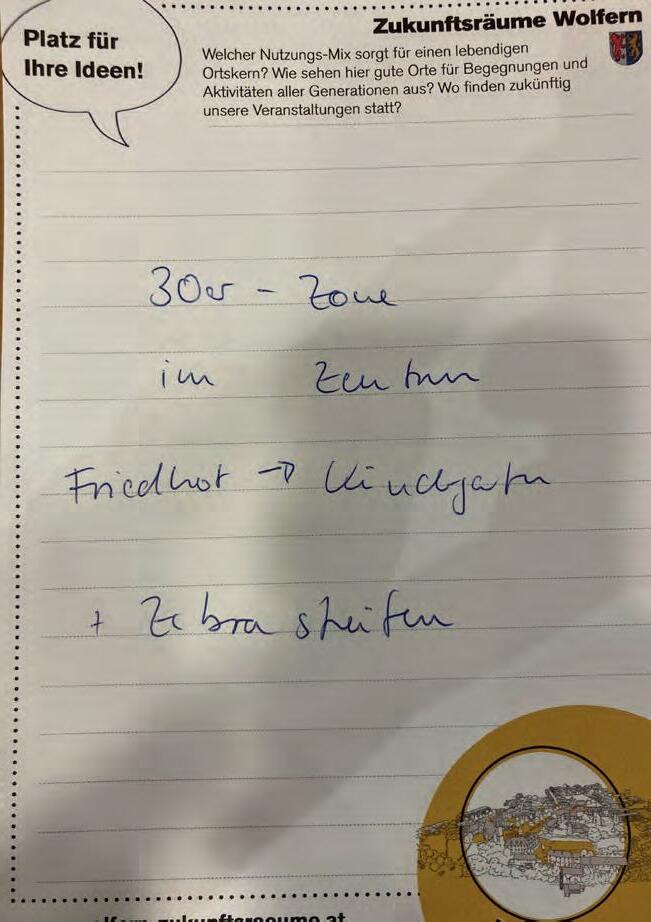 Zukunftsräume Wolfern
Platz für
Ihre Ideen!
Welcher Nutzungs-Mix sorgt für einen lebendigen
Ortskern? Wie sehen hier gute Orte für Begegnungen und
Aktivitäten aller Generationen aus? Wo finden zukünftig
unsere Veranstaltungen statt?
30er - Zone
im Zentrum
Friedhof → Kindgarten
+ Zebrastreifen